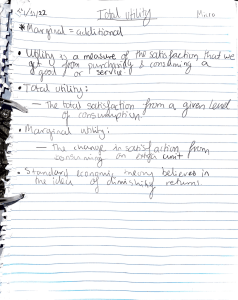 Total Utility
Micro
* Marginal = additional
• Utility is a measure of the satisfaction that we
get from purchasing & consuming a
good or service
• Total utility:
– The total satisfaction from a given level
of consumption.
• Marginal utility:
– the change in satisfaction from
consuming an extra unit
• Standard economic theory believes in
the idea of diminishing returns